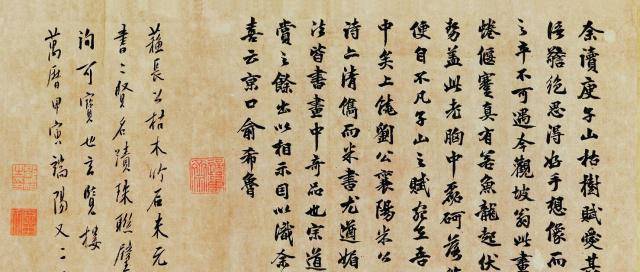 余讀庾子山枯樹賦愛其
語瓌絕思得好手想像而
之卒不可遇今觀坡翁此畫
蜷偃蹇真有若魚龍起伏
勢蓋此老胸中磊砢落筆
便自不凡子山之賦宛在吾
中矣上饒劉公襄陽米公
詩上清儁而米書尤遒媚
法皆書畫中奇品也宗道
賞之餘出以相示因以識余
喜云京口俞希魯
蘇長公枯木竹石米元
書二賢名蹟珠聯璧
洵可寶也玄賢樓
萬曆甲寅端陽又二